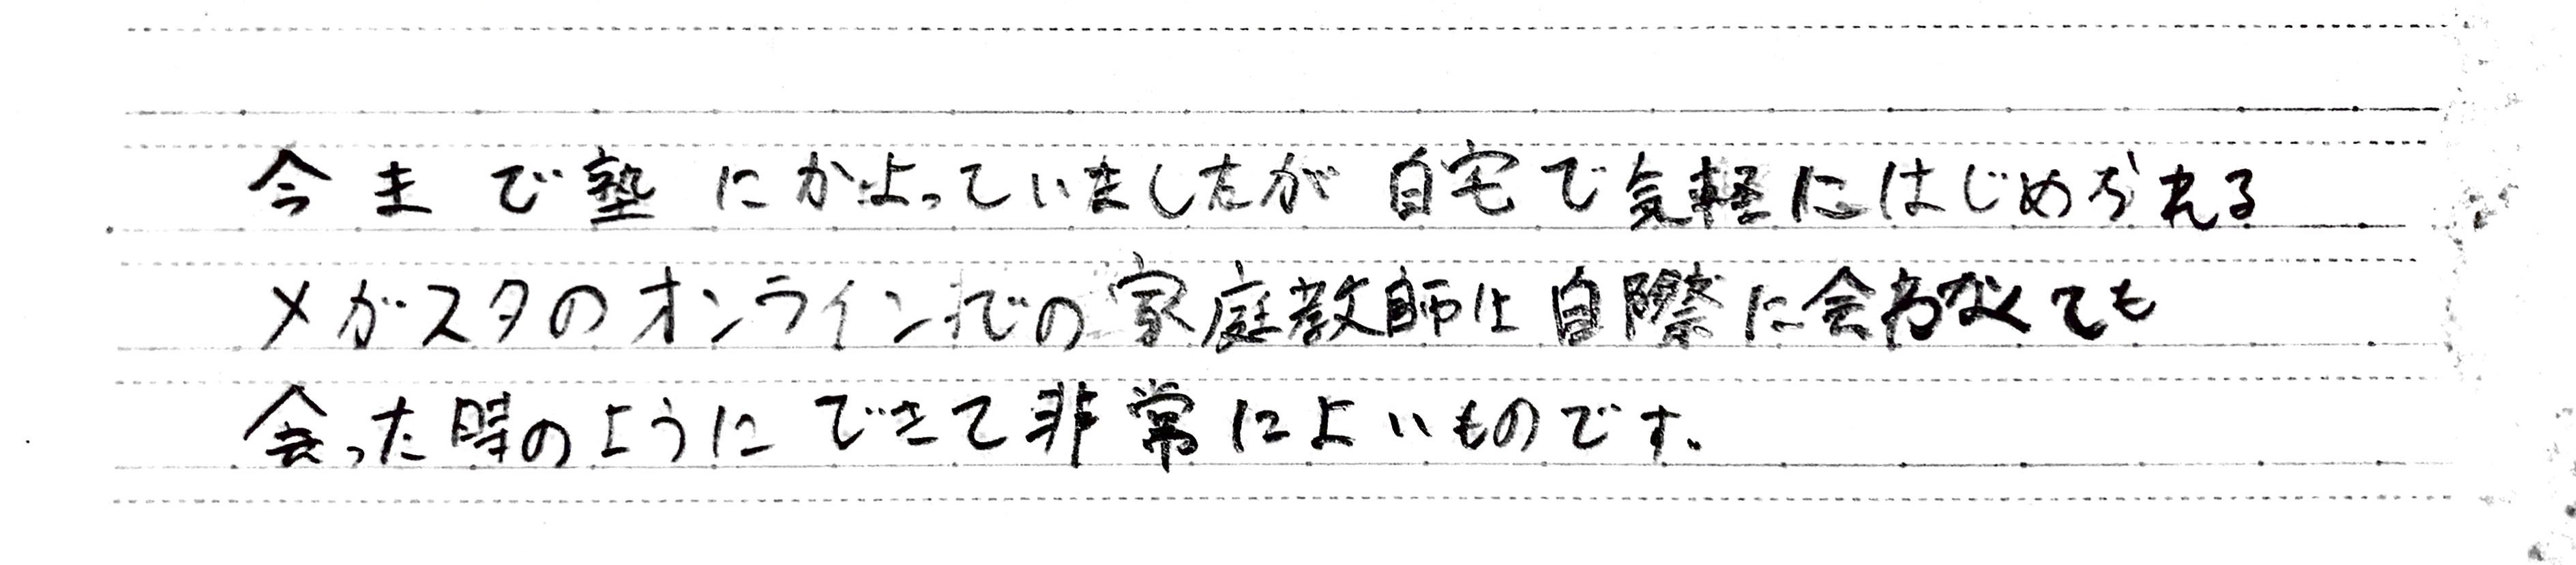 今まで塾にかよっていましたが自宅で気軽にはじめられる
メガスタのオンラインでの家庭教師は自際に会わなくても
会った時のようにできて非常によいものです。